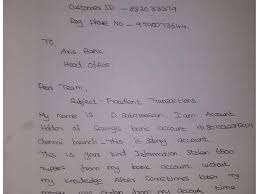 Customer ID -
Reg Phone No -
To,
Axis Bank
Head Office
Dear Team,
Subject - Fraudlent Transactions
My Name is D. I am Account
Holder of Savings bank account
Chennai branch - This is salary account.
This is your kind Information Stolen 6500
rupees from my bank account without
my knowledge After Sometimes later my
money was stolen from my account time